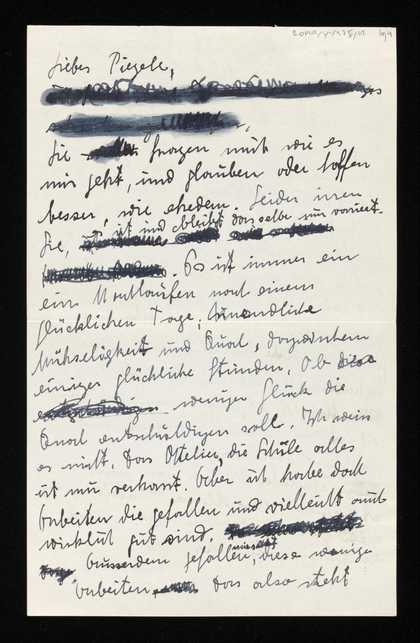 Liebes Piezele,
Sie fragen mich wie es
mir geht, und glauben oder hoffen
besser, wie ehedem. Leider irren
Sie, es ist und bleibt dasselbe nur variiert.
Es ist immer ein
ein Nachlaufen nach einem
glücklichen Tage, unendliche
Mühseligkeit und Qual, dazwischen
einige glückliche Stunden, Ob die
weniger Glück die
Qual entschuldigen soll. Ich weiss
es nicht. Das Atelier, die Schule alles
ist mir verhasst. Aber ich habe doch
Arbeiten die gefallen und vielleicht auch
wirklich gut sind.
Ausserdem gefallen diese wenige
Arbeiten das also steht